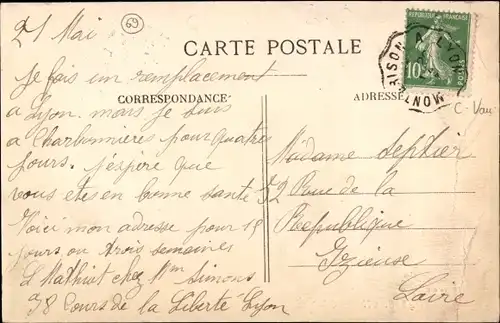 21 Mai
69
CARTE POSTALE
RÉPUBLIQUE FRANÇAISE
10
POSTES
MONTBRISON A LYON
CORRESPONDANCE
ADRESSE
C-Vau
Je fais un remplacement
a Lyon. mais je suis
a Charbonnières pour quatre
jours. j'espère que
vous etes en bonne santé
Voici mon adresse pour 15
jours ou trois semaines
L Mathiut chez Mm Simons
38 Cours de la Liberte Lyon
Madame Septier
32 Rue de la
Republique
Izieuse
Loire